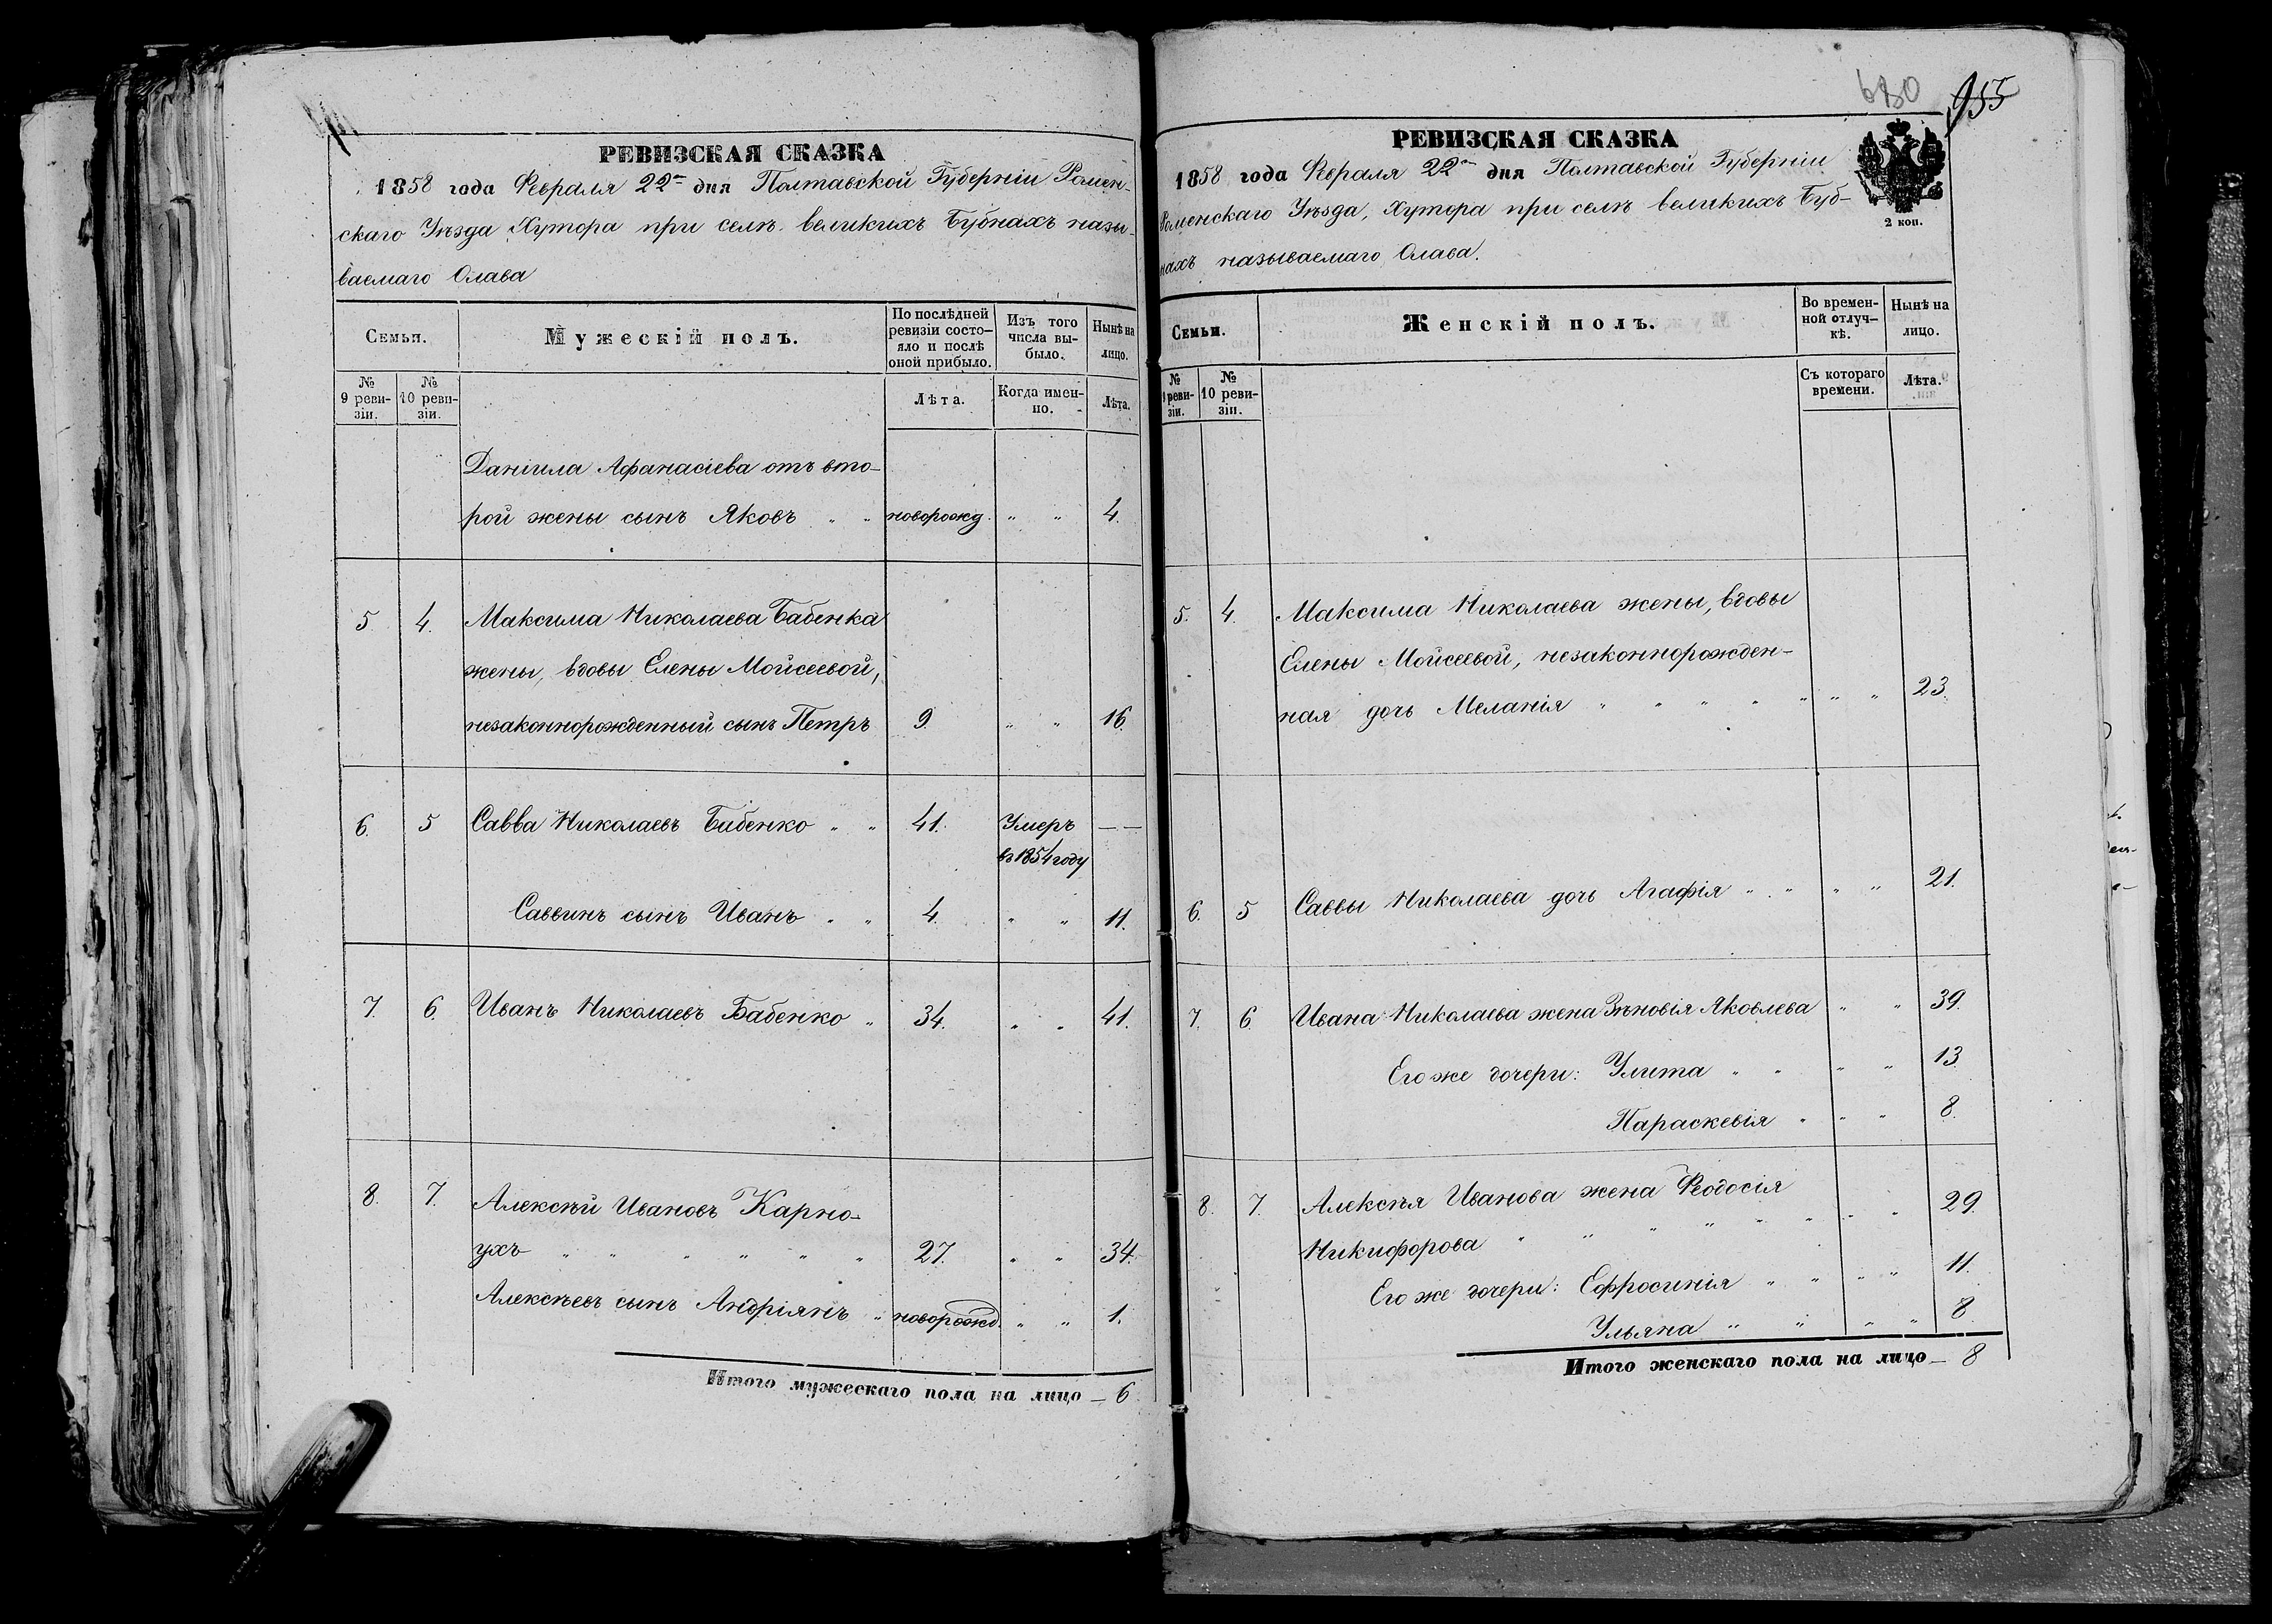 РЕВИЗСКАЯ СКАЗКА
1858 года Февраля 22го дня Полтавской Губерніи Ромен-
скаго Уѣзда Хутора при селѣ великихъ Бубнахъ назы-
ваемаго Олава
Семьи.
Мужескій полъ.
По послѣдней
ревизіи состо-
яло и послѣ
оной прибыло.
Изъ того
числа вы-
было.
Нынѣ на
лицо.
№
9 реви-
зіи.
№
10 реви-
зіи.
Лѣта.
Когда имен-
но.
Лѣта.
Даніила Афанасіева отъ вто-
рой жены сынъ Яковъ " " новорожд. " " 4.
5. 4. Максима Николаева Бабенка
жены, вдовы Елены Мойсеевой,
незаконнорожденный сынъ Петръ 9. " " 16.
6. 5 Савва Николаевъ Бабенко " " 41. Умеръ — —
въ 1854 году
Саввинъ сынъ Иванъ " " 4. " " 11.
7. 6. Иванъ Николаевъ Бабенко " 34. " " 41.
8. 7. Алексѣй Ивановъ Карно-
ухъ " " " " " " 27. " " 34.
Алексѣевъ сынъ Андріянъ " новорожд. " " 1.
Итого мужескаго пола на лицо — 6
680 955
РЕВИЗСКАЯ СКАЗКА
1858 года Февраля 22го дня Полтавской Губерніи
Роменскаго Уѣзда, Хутора при селѣ великихъ Буб-
нахъ называемаго Олава.
2 коп.
Семьи.
Женскій полъ.
Во времен-
ной отлуч-
кѣ.
Нынѣ на
лицо.
№
9 реви-
зіи.
№
10 реви-
зіи.
Съ котораго
времени.
Лѣта.
5. 4. Максима Николаева жены, вдовы
Елены Мойсеевой, незаконнорожден-
ная дочь Меланія " " " " " " " 23.
6. 5 Саввы Николаева дочь Агафія " " " " 21.
7. 6. Ивана Николаева жена Зѣновія Яковлева " " 39.
Его же дочери: Улита " " " " 13
Параскевія " " " 8.
8. 7. Алексѣя Иванова жена Феодосія
Никифорова " " " " " " " " 29.
Его же дочери: Ефросинія " " " " 11.
Ульяна " " " " 8.
Итого женскаго пола на лицо — 8